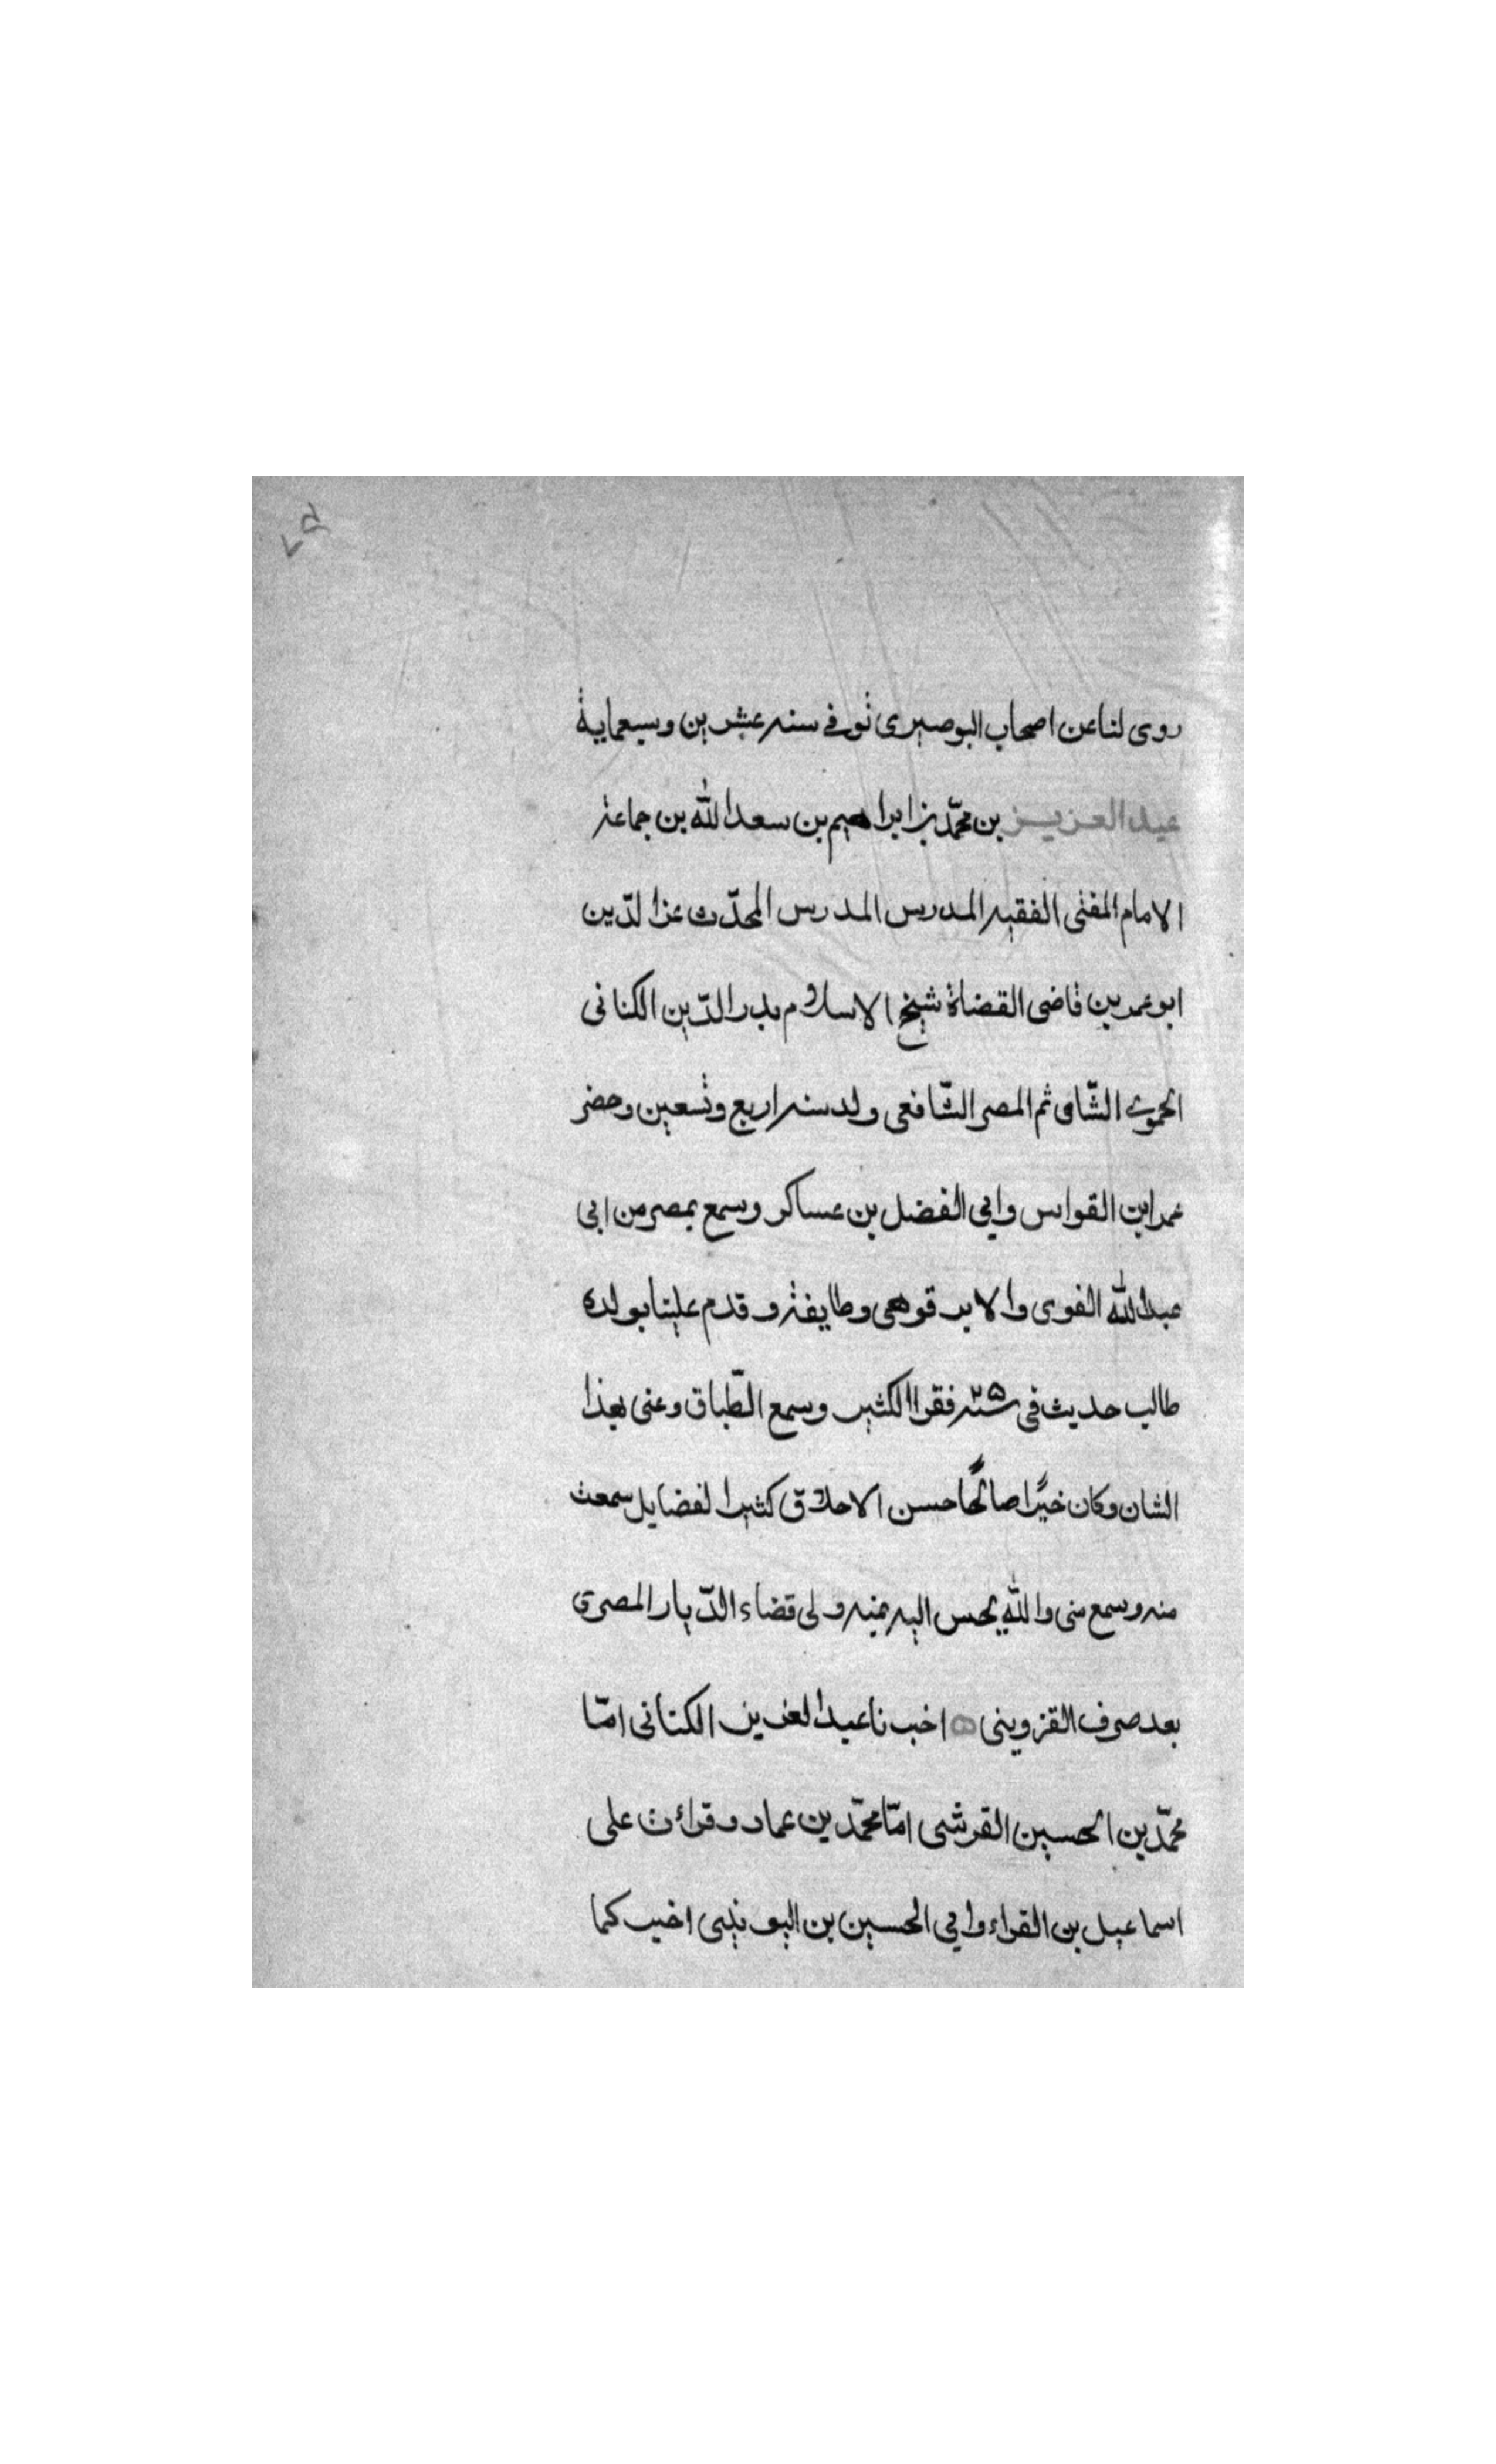 روى لنا عن اصحاب البوصيرى توفي سنه عشرين وسبعماية
عبد العزيز بن محمّد بن ابراهيم بن سعد الله بن جماعة
الامام المفتى الفقيه المدرس المدرس المحدّث عز الدّين
ابو عمر بن قاضى القضاة شيخ الاسلام بدر الدّين الكنانى
الحموى الشّامى ثم المصر الشّافعى ولد سنه اربع وتسعين وحضر
عمر ابن القواس وابي الفضل بن عساكر وسمع بمصر من ابى
عبد الله الفوى والابرقوهى وطايفة وقدم علينا بولده
طالب حديث في سنة ٢٥ فقرا الكثير وسمع الطّباق وعنى بهذا
الشان وكان خيّرًا صالحًا حسن الاخلاق كثير الفضايل سمعت
منه وسمع منى والله يحسن اليه بمنه ولى قضاء الدّيار المصرى
بعد صرف القزوينى ه اخبرنا عبد العزيز الكنانى امّا
محمّد بن الحسين القرشى امّا محمّد بن عماد وقرات على
اسماعيل بن الفراء وابي الحسين بن اليونينى اخبركما